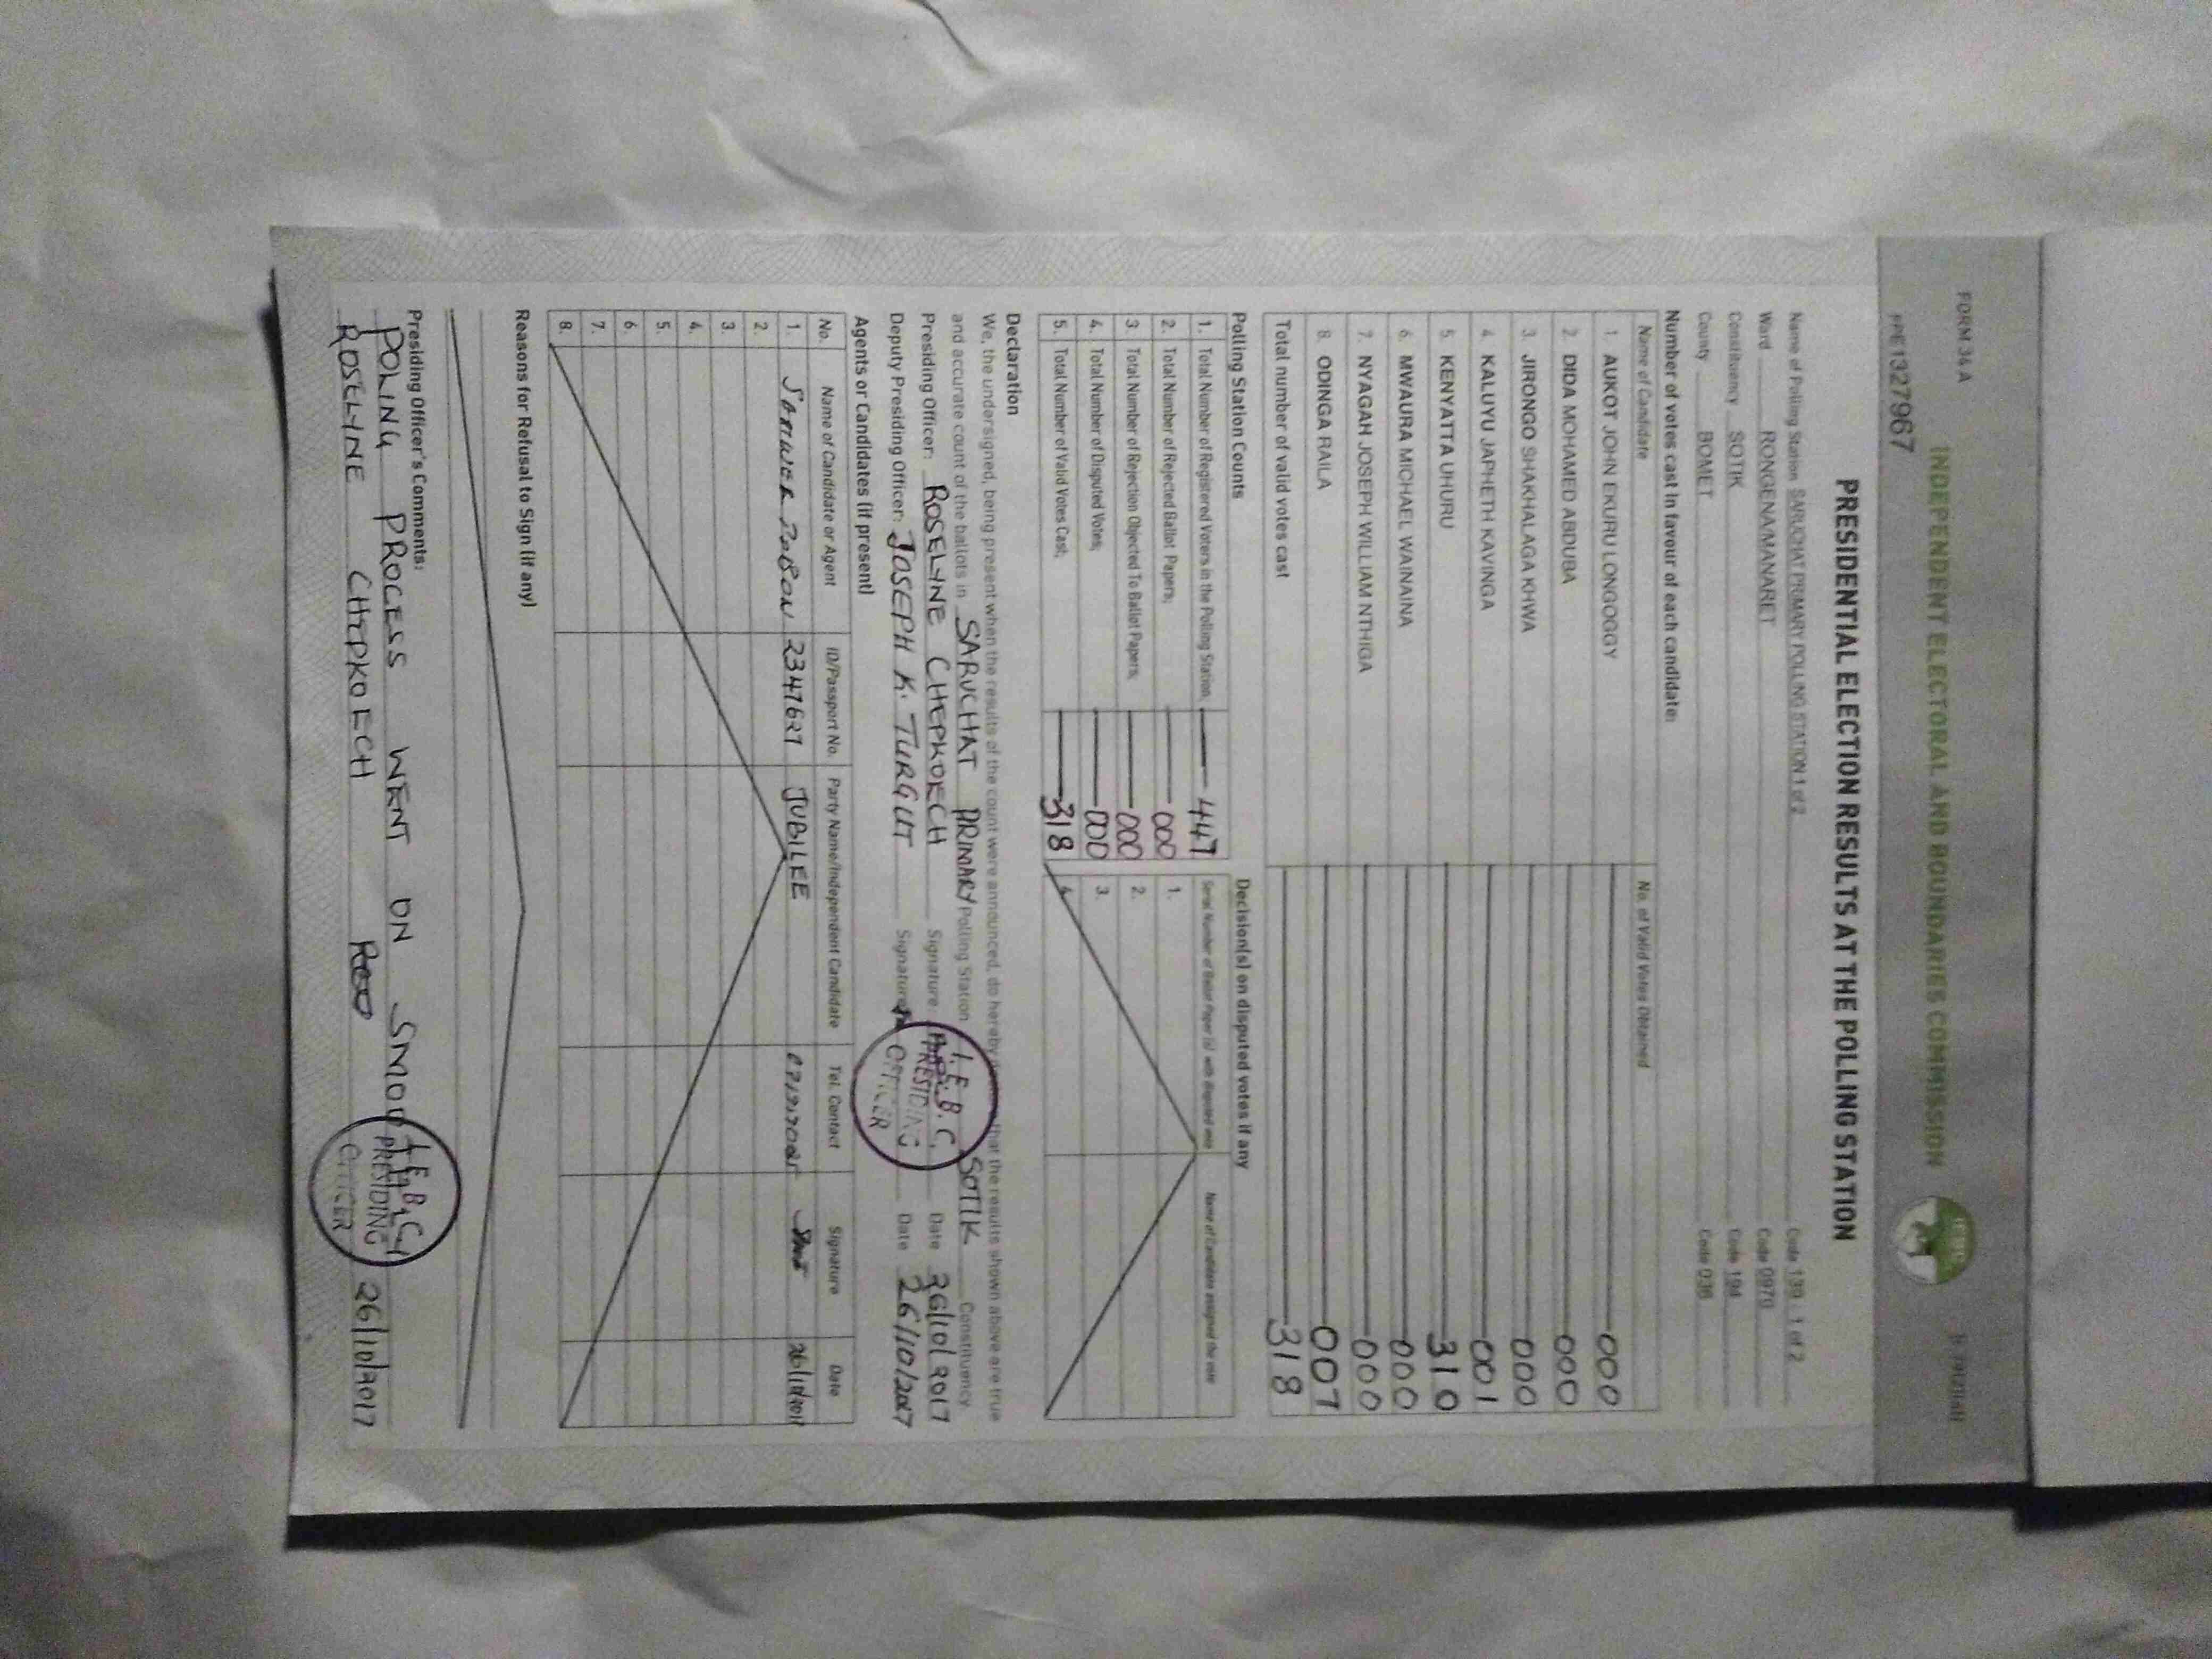 FORM 34 A
INDEPENDENT ELECTORAL AND BOUNDARIES COMMISSION
PRE1327967
PRESIDENTIAL ELECTION RESULTS AT THE POLLING STATION
Name of Polling Station SARUCHAT PRIMARY POLLING STATION 1 of 2 Code 139 - 1 of 2
Ward RONGENA/MANARET Code 0970
Constituency SOTIK Code 194
County BOMET Code 036
Number of votes cast in favour of each candidate:
Name of Candidate No. of Valid Votes Obtained
1. AUKOT JOHN EKURU LONGOGGY 000
2. DIDA MOHAMED ABDUBA 000
3. JIRONGO SHAKHALAGA KHWA 000
4. KALUYU JAPHETH KAVINGA 001
5. KENYATTA UHURU 310
6. MWAURA MICHAEL WAINAINA 000
7. NYAGAH JOSEPH WILLIAM NTHIGA 000
8. ODINGA RAILA 007
Total number of valid votes cast 318
Polling Station Counts Decision(s) on disputed votes if any
1. Total Number of Registered Voters in the Polling Station 447 Serial Number of Ballot Paper (s) with disputed vote Name of Candidate assigned the vote
2. Total Number of Rejected Ballot Papers; 000 1.
3. Total Number of Rejection Objected To Ballot Papers; 000 2.
4. Total Number of Disputed Votes; 000 3.
5. Total Number of Valid Votes Cast; 318 4.
Declaration
We, the undersigned, being present when the results of the count were announced, do hereby that the results shown above are true
and accurate count of the ballots in SARUCHAT PRIMARY Polling Station SOTIK Constituency
Presiding Officer: ROSELINE CHEPKOECH Signature Date 26/10/2017
Deputy Presiding Officer: JOSEPH K. TURGUT Signature Date 26/10/2017
I.E.B.C.
PRESIDING
OFFICER
Agents or Candidates (if present)
No. Name of Candidate or Agent ID/Passport No. Party Name/Independent Candidate Tel. Contact Signature Date
1. 2347627 JUBILEE 26/10/2017
2.
3.
4.
5.
6.
7.
8.
Reasons for Refusal to Sign (if any)
Presiding Officer's Comments:
POLING PROCESS WENT ON
ROSELINE CHEPKOECH 26/10/2017
I.E.B.C.
PRESIDING
OFFICER